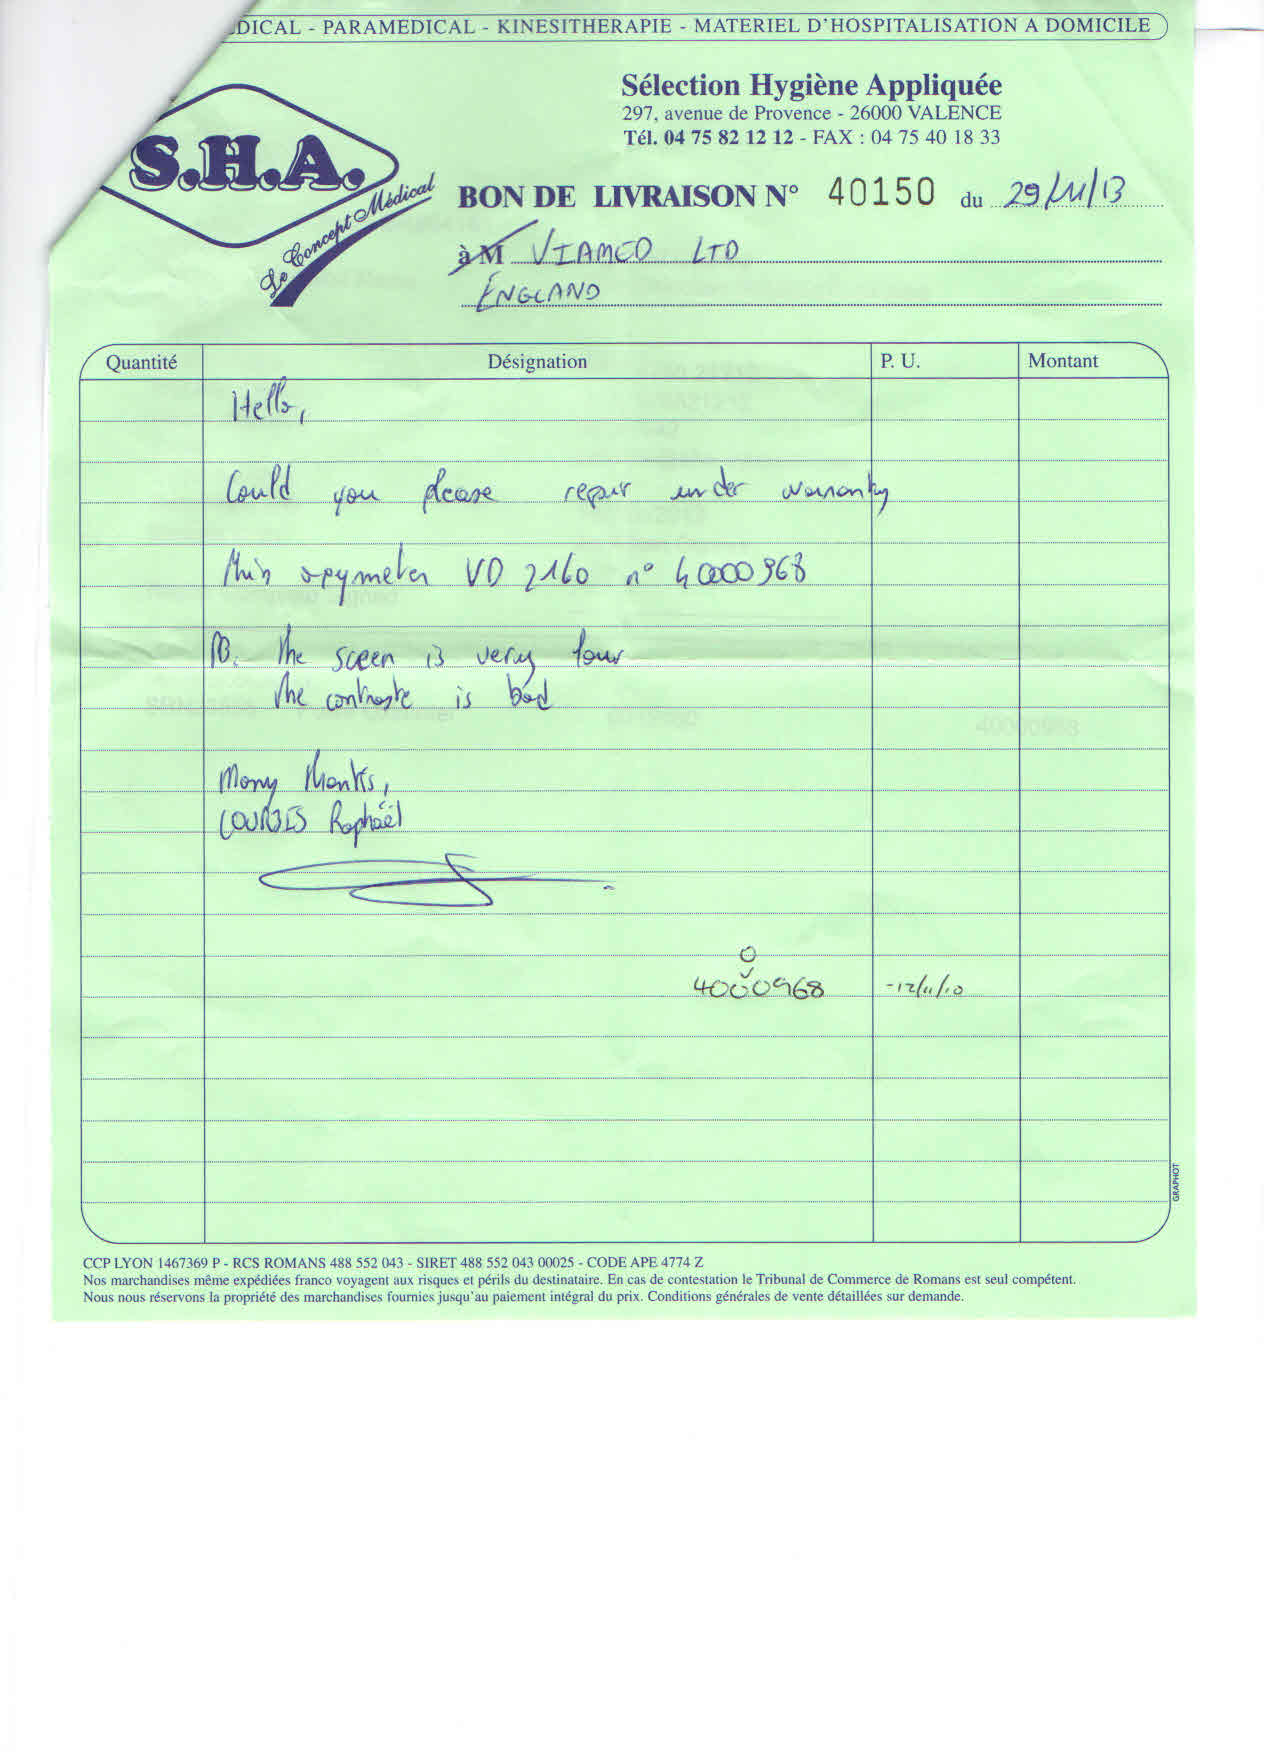 DICAL - PARAMEDICAL - KINESITHERAPIE - MATERIEL D'HOSPITALISATION A DOMICILE
S.H.A.
Le Concept Médical
Sélection Hygiène Appliquée
297, avenue de Provence - 26000 VALENCE
Tél. 04 75 82 12 12 - FAX : 04 75 40 18 33
BON DE LIVRAISON N° 40150 du 29/11/13
à M VIAMED LTD
ENGLAND
Quantité Désignation P. U. Montant
Hello,
Could you please repair under warranty
this oxymeter VD 2160 n° 40000968
NB. the sceen is very
the contraste is bad
Many thanks,
Raphaël
O
4000968 -12/11/10
GRAPHOT
CCP LYON 1467369 P - RCS ROMANS 488 552 043 - SIRET 488 552 043 00025 - CODE APE 4774 Z
Nos marchandises même expédiées franco voyagent aux risques et périls du destinataire. En cas de contestation le Tribunal de Commerce de Romans est seul compétent.
Nous nous réservons la propriété des marchandises fournies jusqu'au paiement intégral du prix. Conditions générales de vente détaillées sur demande.